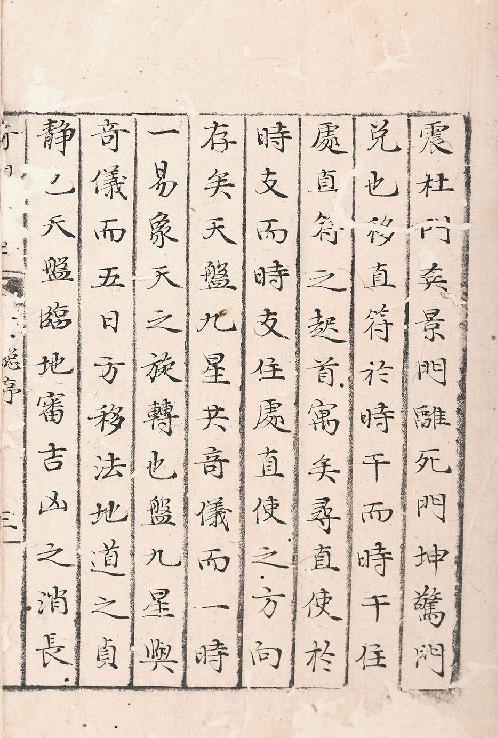 震杜門矣景門離死門坤驚門
兌也移直符於時干而時干住
處直符之起首寓矣尋直使於
時支而時支住處直使之方向
存矣天盤九星共竒儀而一時
一易象天之旋轉也盤九星與
竒儀而五日方移法地道之貞
静乙天盤臨地審吉凶之消長
总序
三